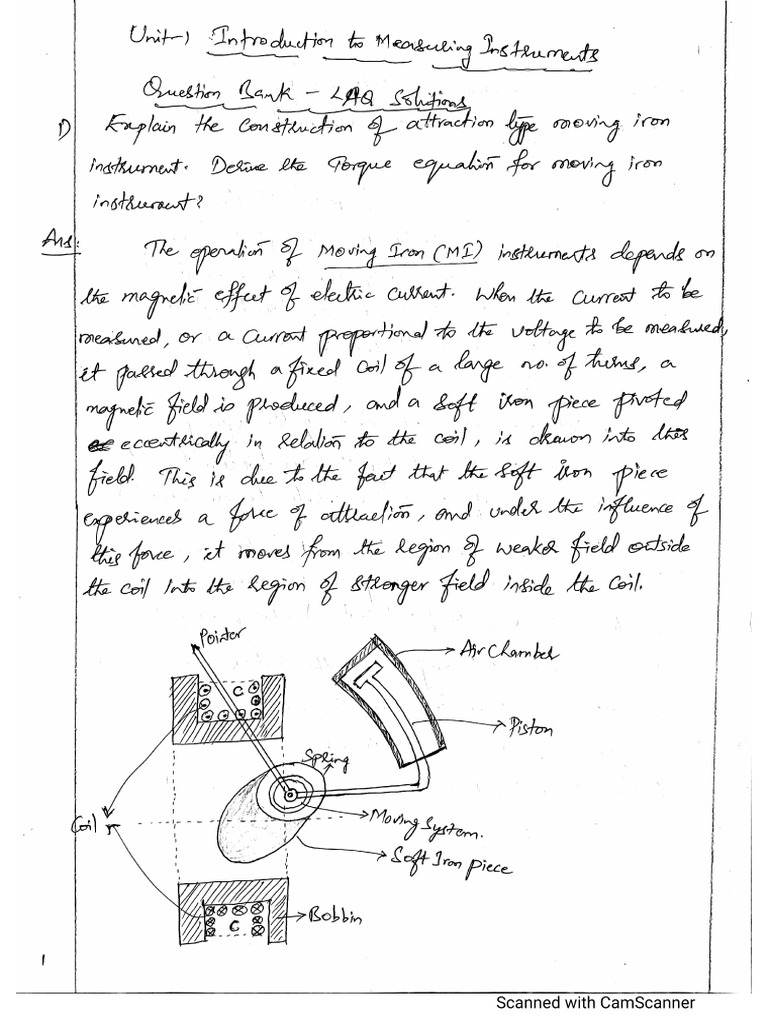 Unit-1 Introduction to Measuring Instruments
Question Bank - LAQ Solutions
1) Explain the construction of attraction type moving iron
instrument. Derive the Torque equation for moving iron
instrument?
Ans: The operation of Moving Iron (MI) instruments depends on
the magnetic effect of electric current. When the current to be
measured, or a current proportional to the voltage to be measured,
it passed through a fixed coil of a large no. of turns, a
magnetic field is produced, and a soft iron piece pivoted
eccentrically in relation to the coil, is drawn into this
field. This is due to the fact that the soft iron piece
experiences a force of attraction, and under the influence of
this force, it moves from the region of weaker field outside
the coil into the region of stronger field inside the coil.
Pointer
Air Chamber
C
Piston
Spring
Coil
Moving System.
Soft Iron piece
Bobbin
C
1
Scanned with CamScanner